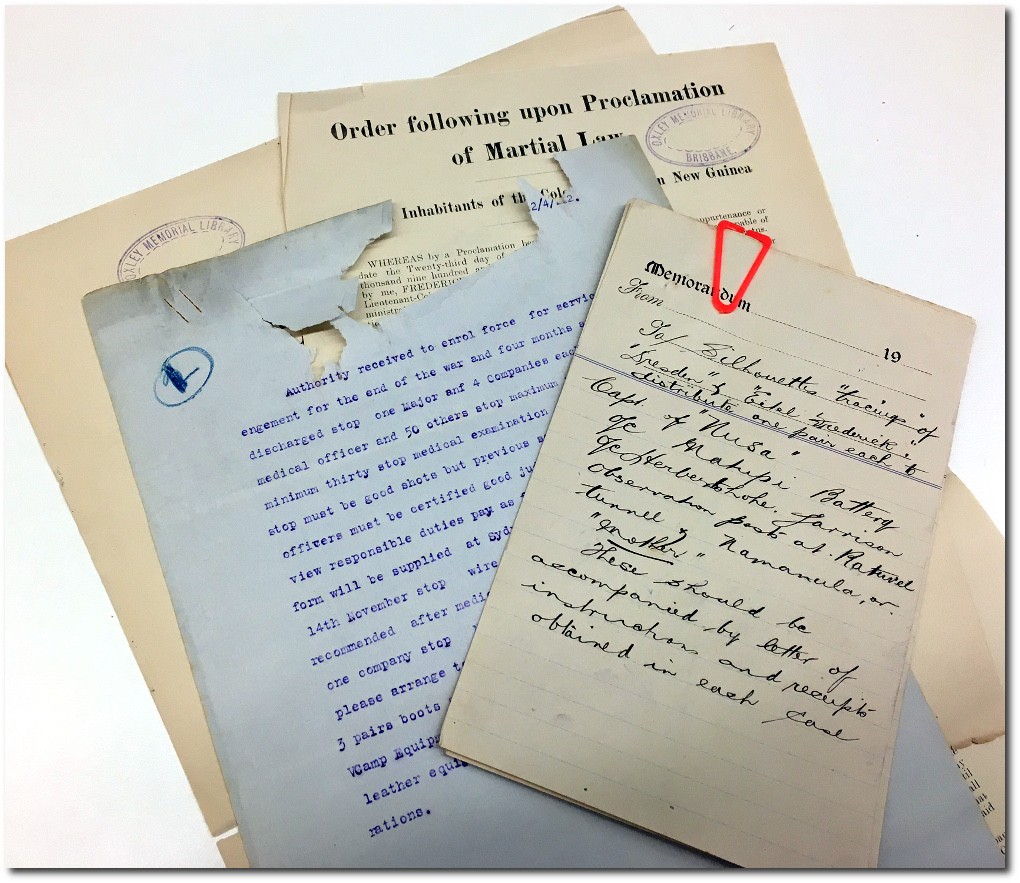 Order following upon Proclamation
of Martial Law
OXLEY MEMORIAL LIBRARY
BRISBANE
Inhabitants of the Col
n New Guinea
2/4/ 2.
OXLEY MEMORIAL LIBRARY
WHEREAS by a Proclamation
date the Twenty-third day of
thousand nine hundred
by me, FREDERIC
Lieutenant-Col
ministra
purtenance or
able of
Authority received to enrol force for servic
engement for the end of the war and four months a
discharged stop one Major anf 4 Companies eac
medical officer and 50 others stop maximum
minimum thirty stop medical examination
stop must be good shots but previous s
officers must be certified good ju
view responsible duties pay as
form will be supplied at Syd
14th November stop wire
recommended after medic
one company stop
please arrange t
3 pairs boots
VCamp Equip
leather equi
rations.
Memorandum
From
19
To/ Silhouette "tracings" of
"Dresden" & "Eitel Frederick"
distribute one pair each to
Capt. of "Nusa"
O/c Matupi Battery
O/c Herbertshohe Garrison
Observation post at Ratavul
tunnel & Namanula, or
"Mother"
These should be
accompanied by letter of
instructions and receipts
obtained in each case